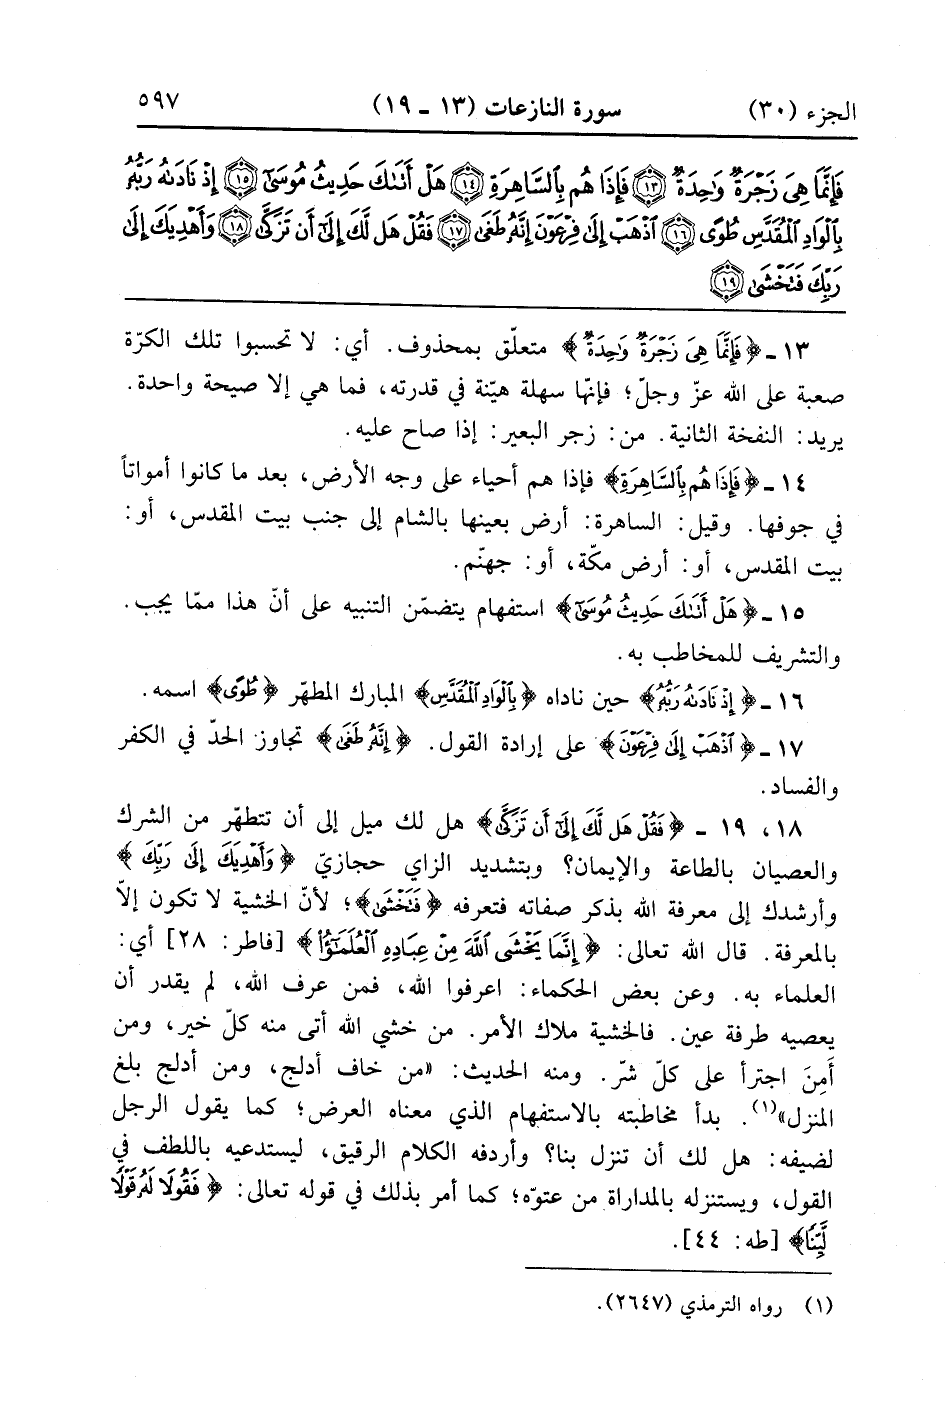 الجزء (٣٠) سورة النازعات (١٣ ـ ١٩) ٥٩٧
فَإِنَّمَا هِىَ زَجْرَةٌ وَٰحِدَةٌ ١٣ فَإِذَا هُم بِٱلسَّاهِرَةِ ١٤ هَلْ أَتَىٰكَ حَدِيثُ مُوسَىٰٓ ١٥ إِذْ نَادَىٰهُ رَبُّهُۥ
بِٱلْوَادِ ٱلْمُقَدَّسِ طُوًى ١٦ ٱذْهَبْ إِلَىٰ فِرْعَوْنَ إِنَّهُۥ طَغَىٰ ١٧ فَقُلْ هَل لَّكَ إِلَىٰٓ أَن تَزَكَّىٰ ١٨ وَأَهْدِيَكَ إِلَىٰ
رَبِّكَ فَتَخْشَىٰ ١٩
١٣ ـ ﴿فَإِنَّمَا هِىَ زَجْرَةٌ وَٰحِدَةٌ﴾ متعلّق بمحذوف. أي: لا تحسبوا تلك الكرّة
صعبة على الله عزّ وجلّ؛ فإنّها سهلة هيّنة في قدرته، فما هي إلا صيحة واحدة.
يريد: النفخة الثانية. من: زجر البعير: إذا صاح عليه.
١٤ ـ ﴿فَإِذَا هُم بِٱلسَّاهِرَةِ﴾ فإذا هم أحياء على وجه الأرض، بعد ما كانوا أمواتاً
في جوفها. وقيل: الساهرة: أرض بعينها بالشام إلى جنب بيت المقدس، أو:
بيت المقدس، أو: أرض مكّة، أو: جهنّم.
١٥ ـ ﴿هَلْ أَتَىٰكَ حَدِيثُ مُوسَىٰٓ﴾ استفهام يتضمّن التنبيه على أنّ هذا ممّا يجب.
والتشريف للمخاطب به.
١٦ ـ ﴿إِذْ نَادَىٰهُ رَبُّهُۥ﴾ حين ناداه ﴿بِٱلْوَادِ ٱلْمُقَدَّسِ﴾ المبارك المطهّر ﴿طُوًى﴾ اسمه.
١٧ ـ ﴿ٱذْهَبْ إِلَىٰ فِرْعَوْنَ﴾ على إرادة القول. ﴿إِنَّهُۥ طَغَىٰ﴾ تجاوز الحدّ في الكفر
والفساد.
١٨، ١٩ ـ ﴿فَقُلْ هَل لَّكَ إِلَىٰٓ أَن تَزَكَّىٰ﴾ هل لك ميل إلى أن تتطهّر من الشرك
والعصيان بالطاعة والإيمان؟ وبتشديد الزاي حجازيّ ﴿وَأَهْدِيَكَ إِلَىٰ رَبِّكَ﴾
وأرشدك إلى معرفة الله بذكر صفاته فتعرفه ﴿فَتَخْشَىٰ﴾؛ لأنّ الخشية لا تكون إلاّ
بالمعرفة. قال الله تعالى: ﴿إِنَّمَا يَخْشَى ٱللَّهَ مِنْ عِبَادِهِ ٱلْعُلَمَٰٓؤُا۟﴾ [فاطر: ٢٨] أي:
العلماء به. وعن بعض الحكماء: اعرفوا الله، فمن عرف الله، لم يقدر أن
يعصيه طرفة عين. فالخشية ملاك الأمر. من خشي الله أتى منه كلّ خير، ومن
أَمِنَ اجترأ على كلّ شرّ. ومنه الحديث: «من خاف أدلج، ومن أدلج بلغ
المنزل»(١). بدأ مخاطبته بالاستفهام الذي معناه العرض؛ كما يقول الرجل
لضيفه: هل لك أن تنزل بنا؟ وأردفه الكلام الرقيق، ليستدعيه باللطف في
القول، ويستنزله بالمداراة من عتوّه؛ كما أمر بذلك في قوله تعالى: ﴿فَقُولَا لَهُۥ قَوْلًا
لَّيِّنًا﴾ [طه: ٤٤].
(١) رواه الترمذي (٢٦٤٧).